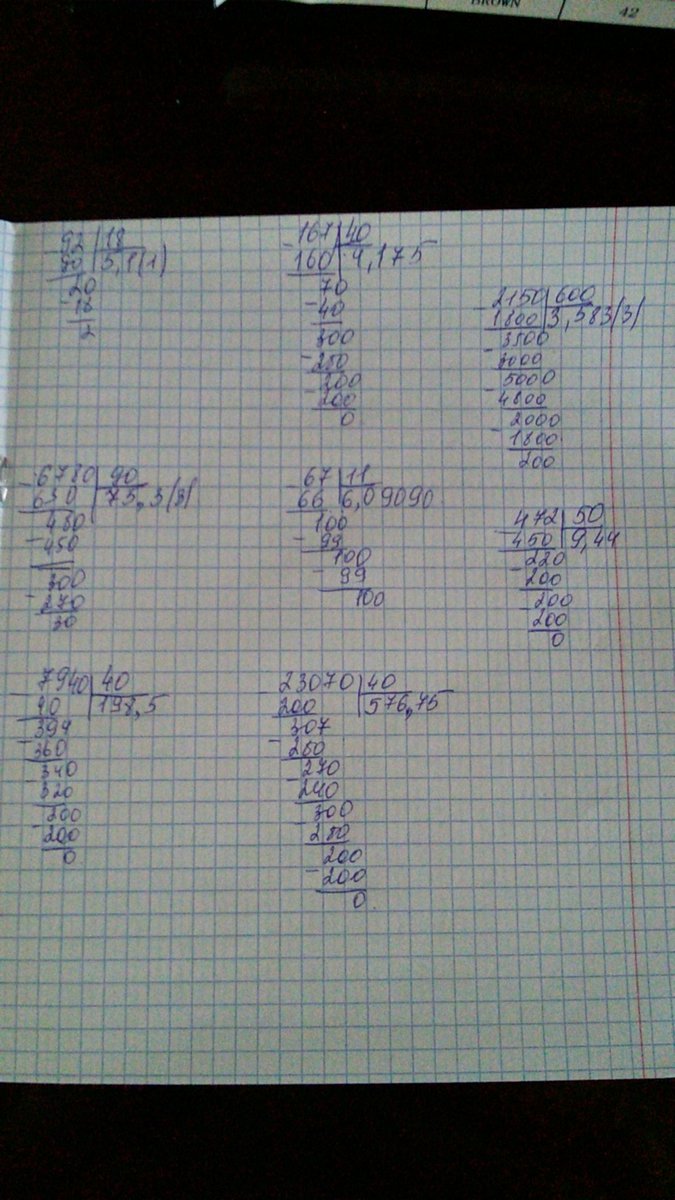 BROWN
42
92 | 18
90 | 5,1(1)
20
18
2
-167 | 40
160 | 4,175
70
-40
300
-280
200
-200
0
-2150 | 600
1800 | 3,583(3)
3500
-3000
5000
-4800
2000
-1800
200
-6780 | 90
630 | 75,3(3)
480
-450
300
-270
30
-67 | 11
66 | 6,09090
100
-99
100
-99
100
-472 | 50
450 | 9,44
220
-200
200
-200
0
-7940 | 40
40 | 198,5
394
-360
340
-320
200
-200
0
-23070 | 40
200 | 576,75
307
-280
270
-240
300
-280
200
-200
0